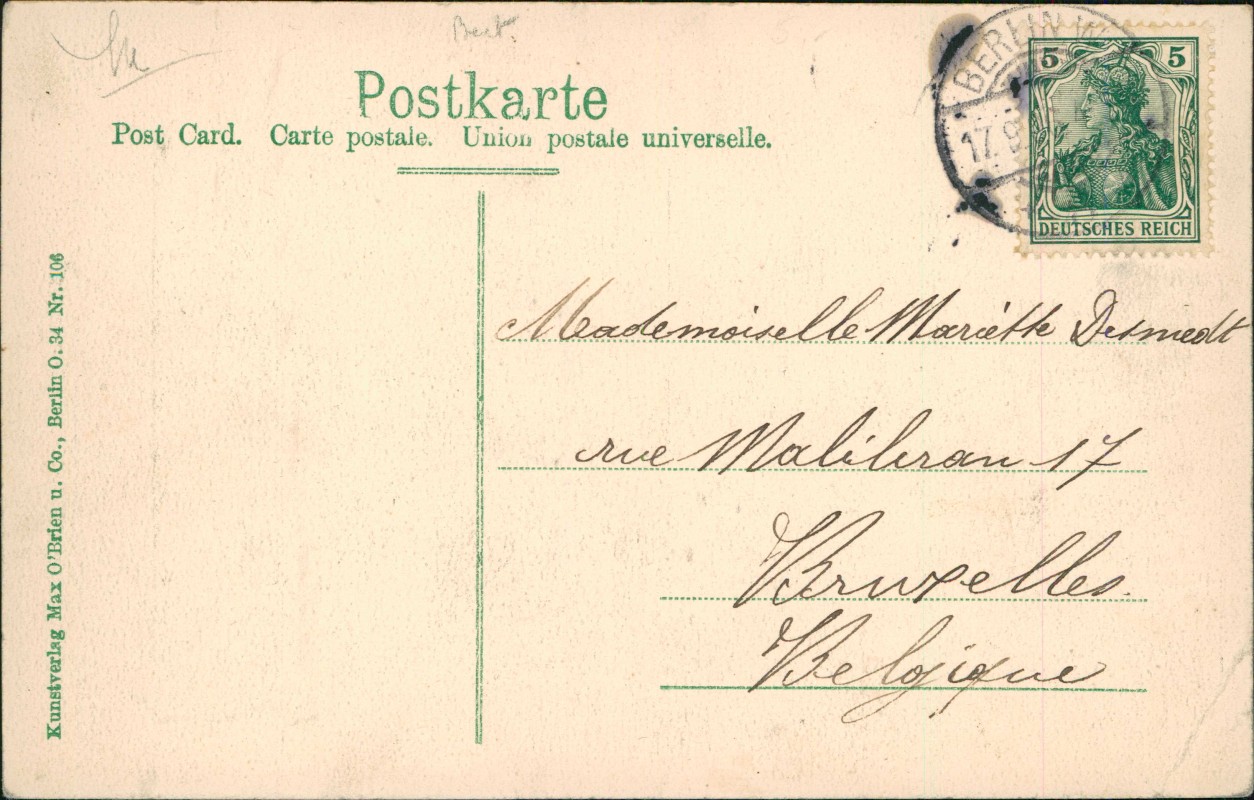 Postkarte
Post Card. Carte postale. Union postale universelle.
BERLIN W.
17.9
5 5
DEUTSCHES REICH
Mademoiselle Mariette Desmedt
rue Malibran 17
Bruxelles.
Belgique
Kunstverlag Max O'Brien u. Co., Berlin O. 34 Nr. 106